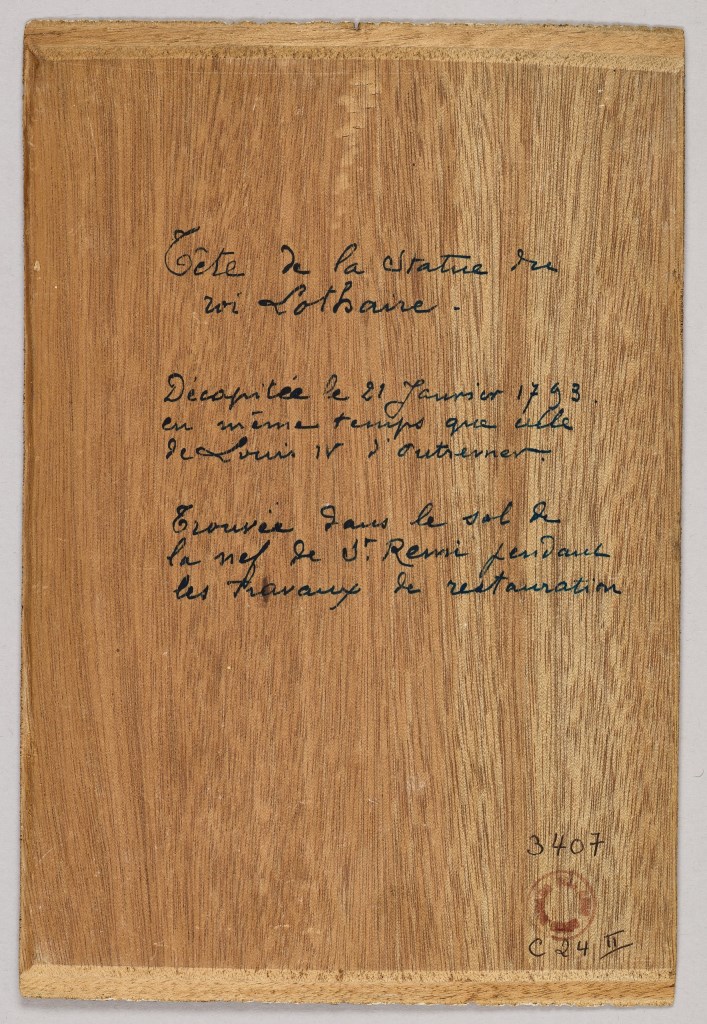 Tête de la statue du
roi Lothaire.
Décapitée le 21 Janvier 1793.
en même temps que celle
de Louis IV d'Outremer.
Trouvée dans le sol de
la nef de St. Remi pendant
les travaux de restauration
3407
C 24 II